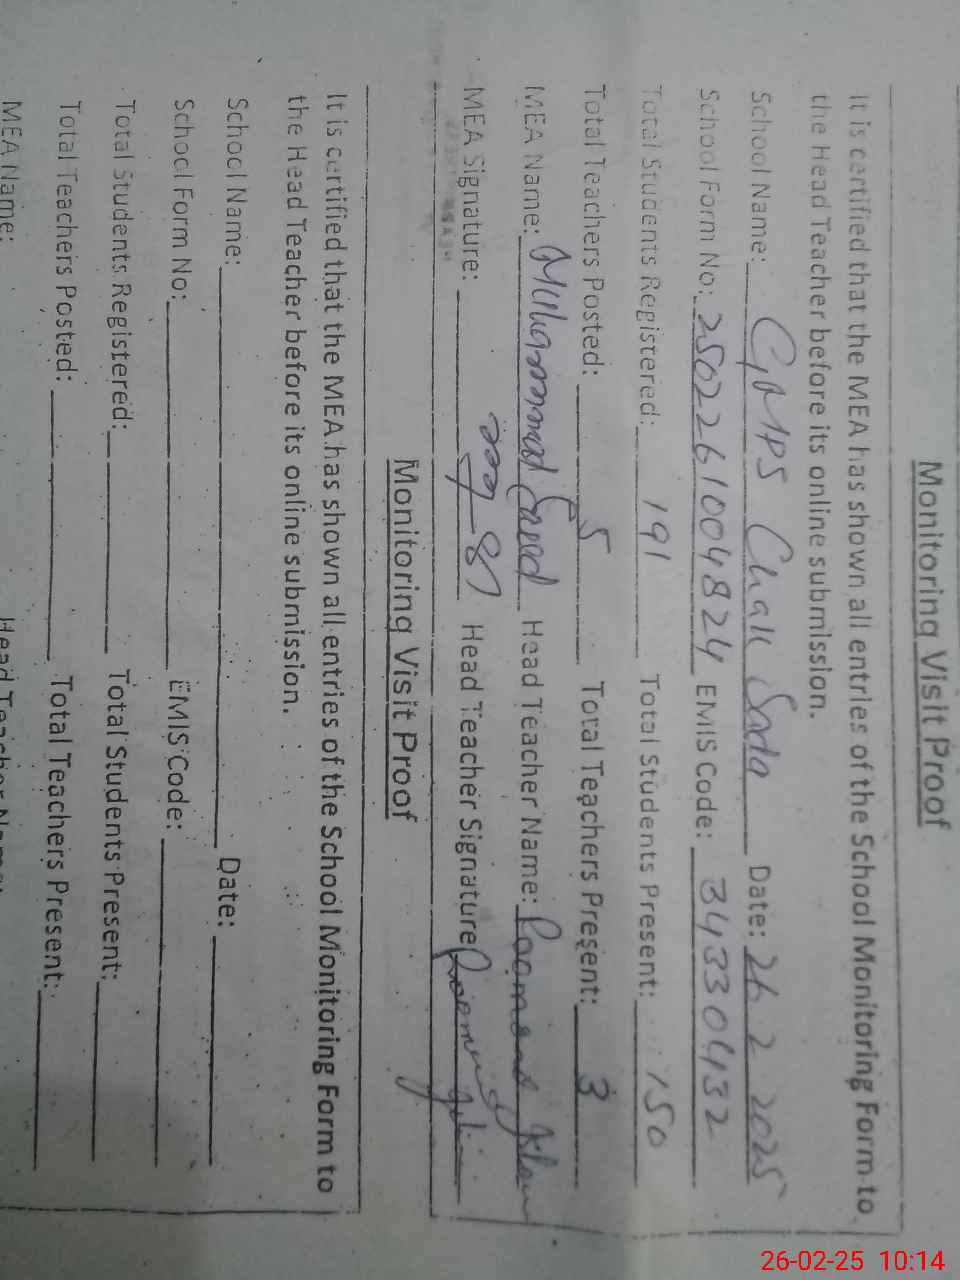 Monitoring Visit Proof
It is certified that the MEA has shown all entries of the School Monitoring Form to
the Head Teacher before its online submission.
School Name: GMPS Chak Sada Date: 26 2 2025
School Form No: 2502261004824 EMIS Code: 34330432
Total Students Registered: 191 Total Students Present: 150
Total Teachers Posted: 5 Total Teachers Present: 3
MEA Name: Muhammad Saeed Head Teacher Name:
MEA Signature: Head Teacher Signature
Monitoring Visit Proof
It is certified that the MEA has shown all entries of the School Monitoring Form to
the Head Teacher before its online submission.
School Name: Date:
School Form No: EMIS Code:
Total Students Registered: Total Students Present:
Total Teachers Posted: Total Teachers Present:
MEA Name: Head Teacher Name:
26-02-25 10:14